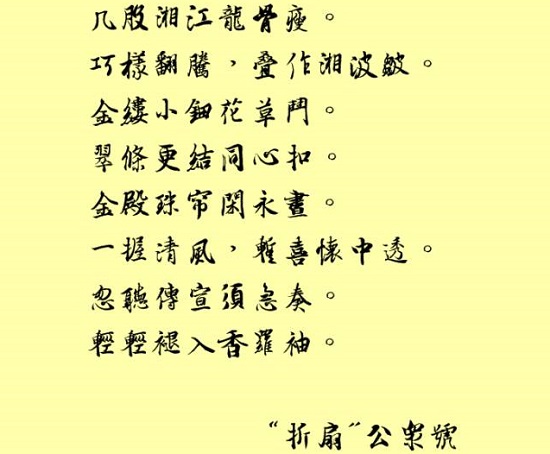 几股湘江龍骨瘦。
巧樣翻騰，叠作湘波皺。
金縷小鈿花草鬥。
翠條更結同心扣。
金殿珠帘閑永晝。
一握清風，暫喜懷中透。
忽聽傳宣須急奏。
輕輕褪入香羅袖。
“折扇”公衆號